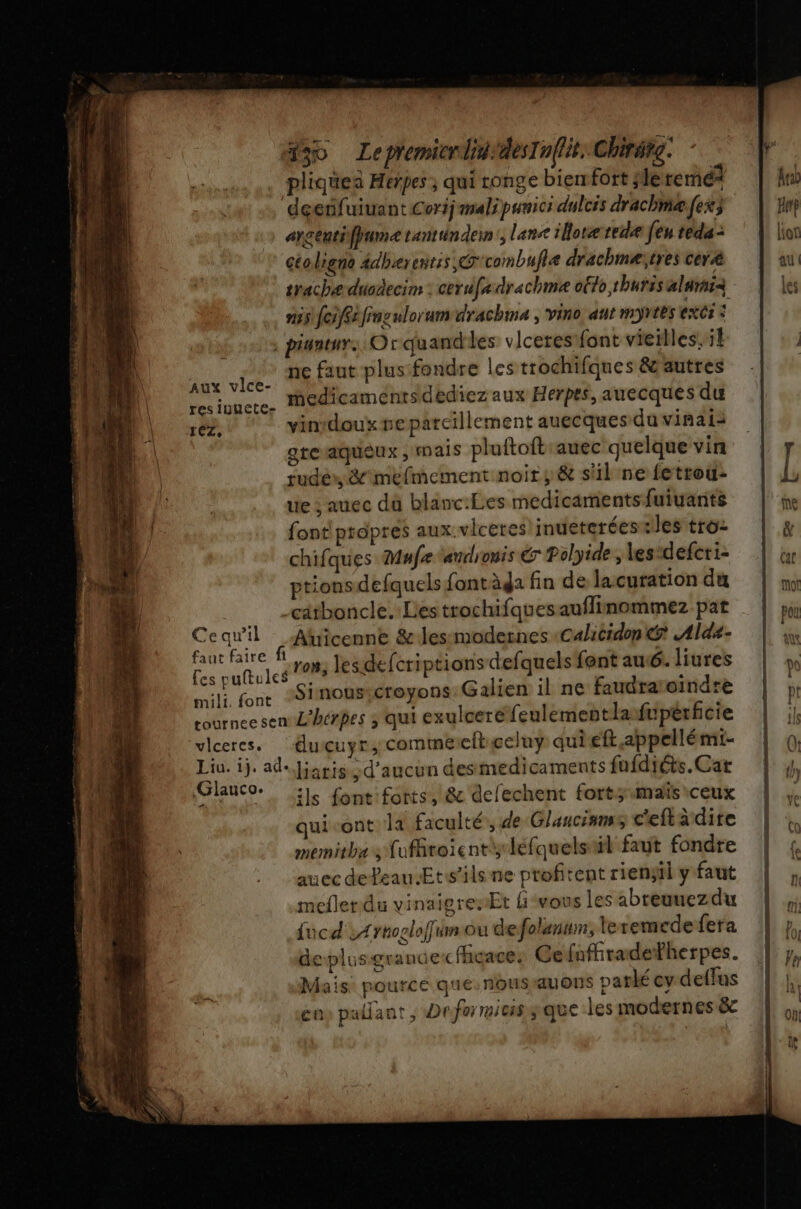 130 Le premier liu. des Inſtit. Chirurg.
pliquea Herpes, qui ronge bien fort ; le remé-
de enſuiuant Corij mali punici dulcis drachmæ ſex;
argenti ſpumæ tantundem, lanæ illotæ tedæ ſeu teda-
cto ligno adhærentis, & combuſtæ drachmæ, tres ceræ
drachæ duodecim : ceruſa drachmæ octo, thuris aluminis
ſciſſi ſingulorum drachma, vino aut myrtes exci-
piuntur. Or quand les vlceres ſont vieilles, il
ne faut plus fondre les trochiſques & autres
medicaments dediez aux Herpes, auecques du
vin doux ne pareillement auecques du vinai-
gre aqueux, mais pluſtoſt auec quelque vin
rude, & meſmement noir, & s'il ne ſe trou-
ue, auec du blanc. Les medicaments ſuiuants
ſont propres aux vlceres inueterées : les tro-
chiſques Muſæ andronis & Polyide, les deſcri-
ptions deſquels ſont à la fin de la curation du
carboncle. Les trochiſques auſſi nommez par
Auicenne & les modernes Calicidon & Alda-
ron, les deſcriptions deſquels ſont au 6. liures
Si nous croyons Galien il ne faudra oindre
L'herpes, qui exulcere ſeulement la ſuperficie
du cuyr, comme eſt celuy qui eſt appellé mi-
liaris, d'aucun des medicaments ſuſdicts. Car
ils ſont forts, & deſechent fort, mais ceux
qui ont la faculté, de Glaucium, c'eſt à dire
memitha, ſuffiroient, leſquels il faut fondre
auec de l'eau. Et s'ils ne profitent rien, il y faut
meſler du vinaigre. Et ſi vous les abreuuez du
ſuc d'Arnogloſſum ou de ſolanum, le remede ſera
de plus grande efficace. Ce ſuffira de l'herpes.
Mais pource que nous auons parlé cy deſſus
en paſſant, De formicis, que les modernes &
Aux vlce-
res inuete-
rez.
Ce qu'il
faut faire ſi
ſes puſtules
mili. ſont
tournee s en
vlceres.
Liu. ij. ad
Glauco.